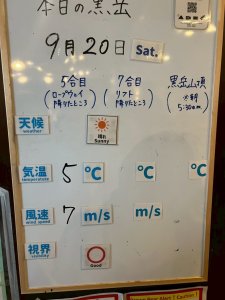 本日の黒岳
9月20日 Sat.
5合目 7合目 黒岳山頂
(ロープウェイ降りたところ) (リフト降りたところ) (5:30am)
天候
weather
晴れ
Sunny
気温 5 ℃ ℃ ℃
temperature
風速 7 m/s m/s
wind speed
視界
visibility
Good